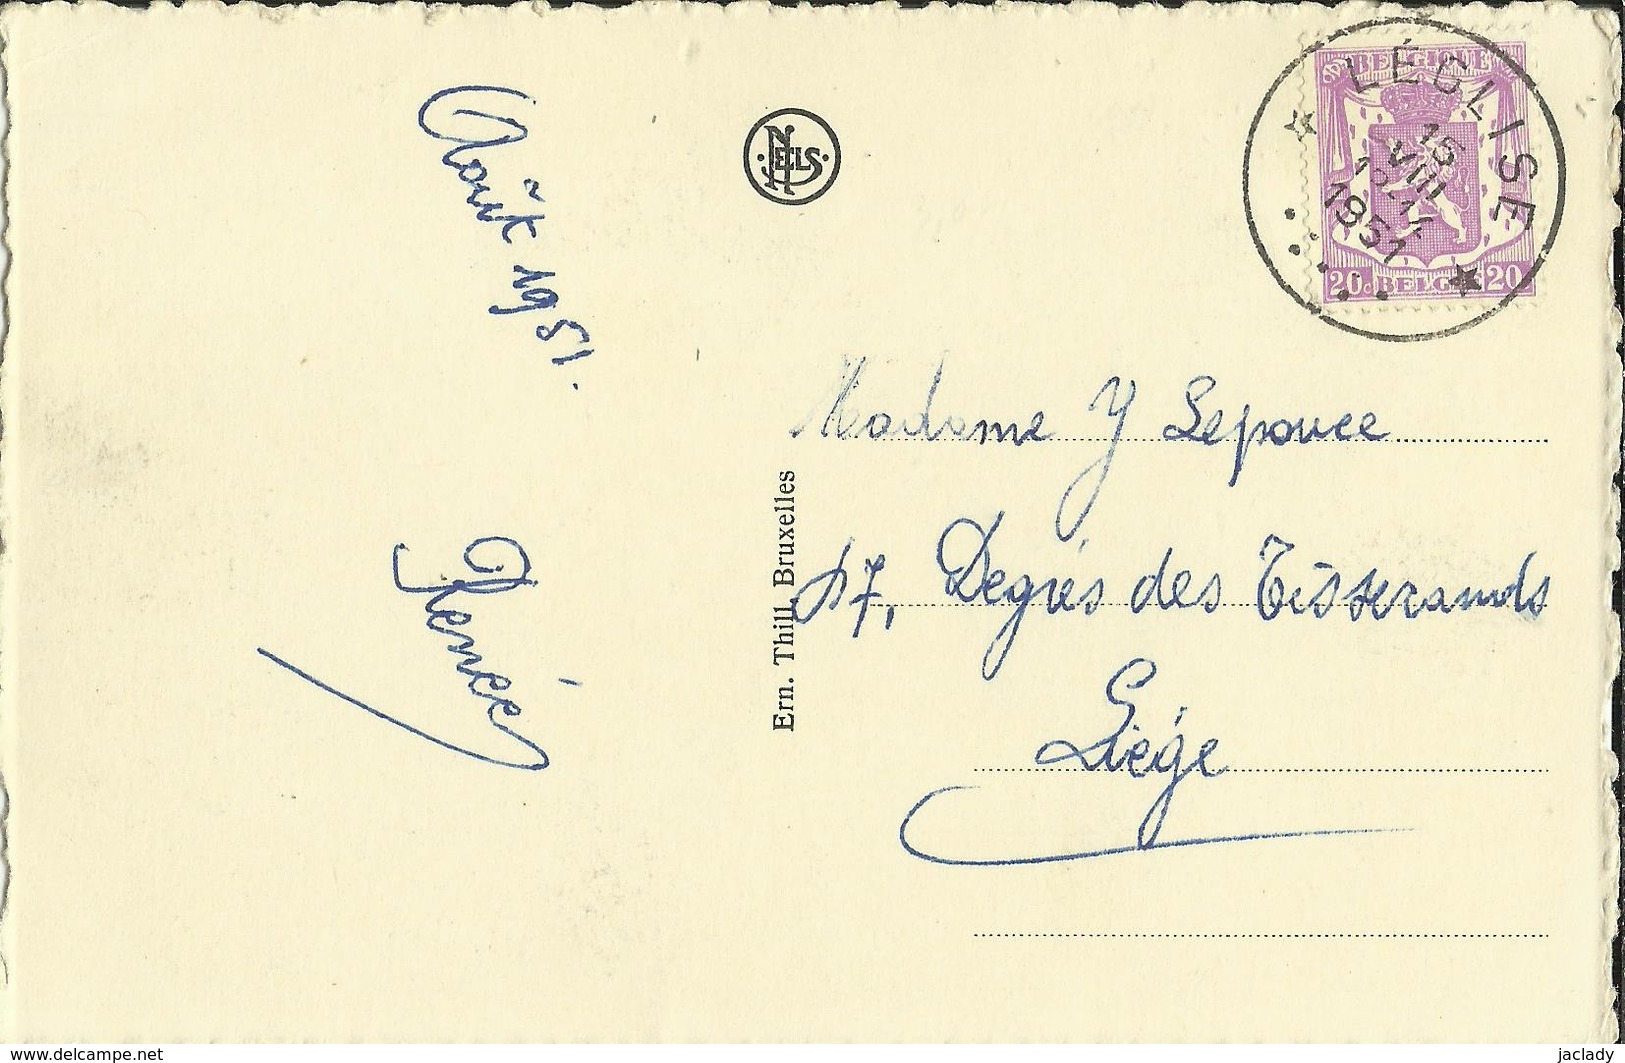 Août 1951.
Renée
NELS
Ern. Thill, Bruxelles
BELGIQUE
20c BELGIE 20
LÉGLISE
15
VIII
1951
Madame Y Lepouce
17, Degrés des Tisserands
Liége
www.delcampe.net
jaclady